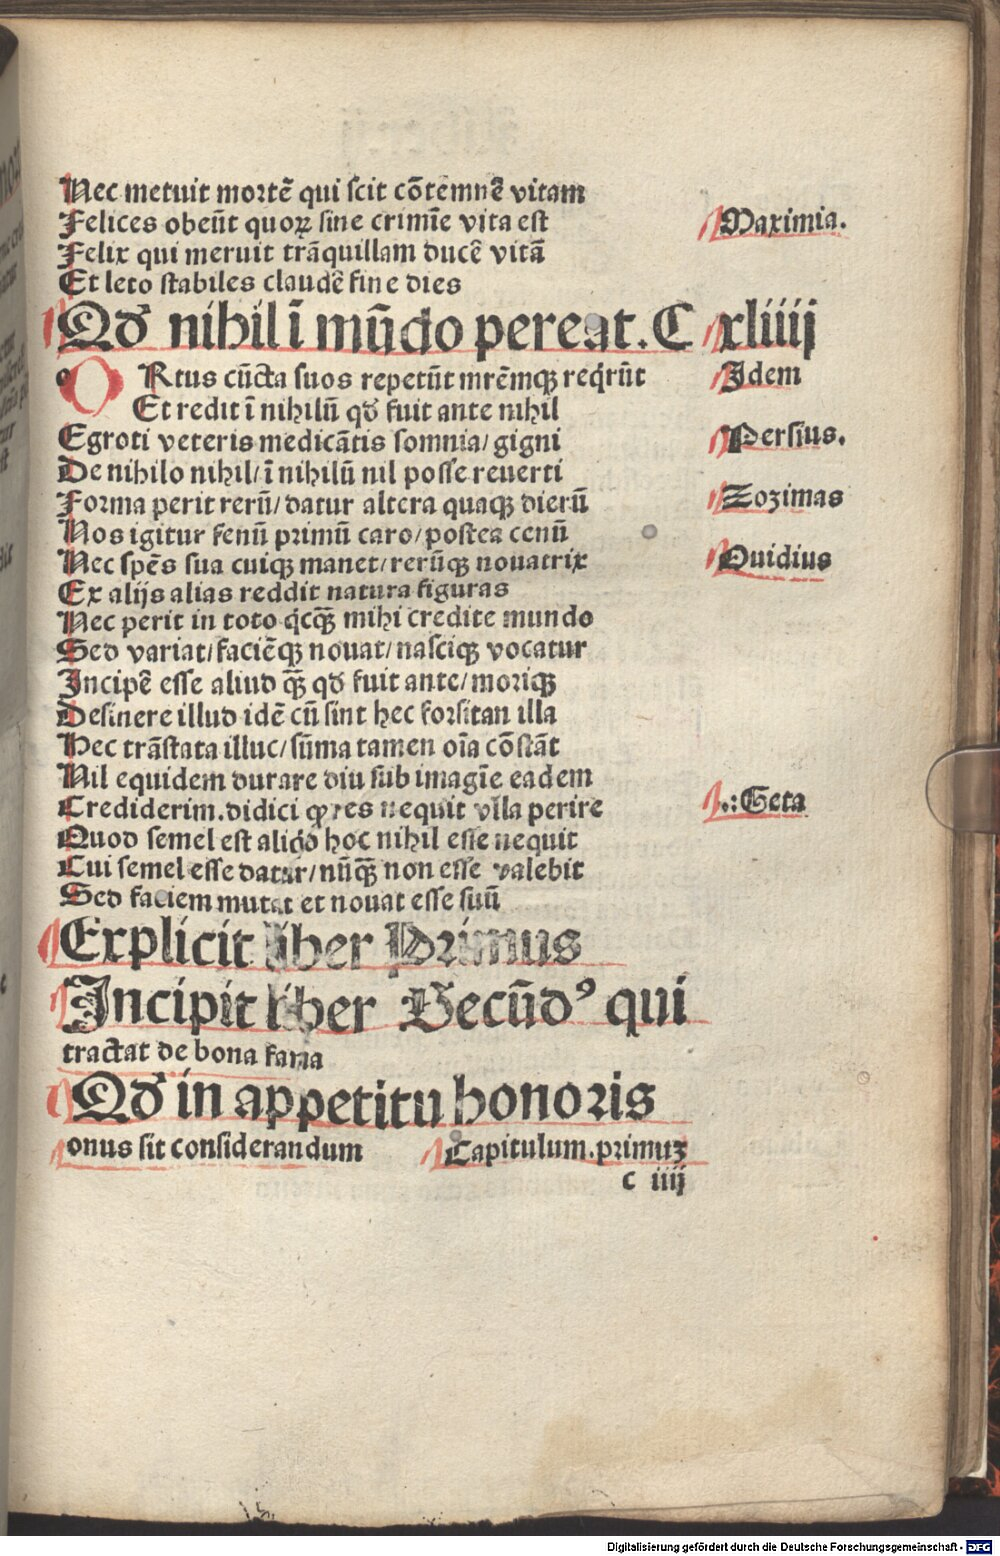 Nec metuit mortē qui scit cōtemnē vitam
Felices obeūt quoꝝ sine crimīe vita est
Maximia.
Felix qui meruit trāquillam ducē vitā
Et leto stabiles claudē fine dies
Qđ nihil ī mūdo pereat. C xliiij
ORtus cūcta suos repetūt mrēmqꝫ reqͥrūt
Idem
Et redit ī nihilū qđ fuit ante nihil
Egroti veteris medicātis somnia/ gigni
Persius.
De nihilo nihil/ ī nihilū nil posse reuerti
Forma perit rerū/ datur altera quaqꝫ dierū
Zozimas
Nos igitur fenū primū caro/ postea cenū
Nec spēs sua cuiqꝫ manet/ rerūqꝫ nouatrix
Ouidius
Ex alijs alias reddit natura figuras
Nec perit in toto qͥcqꝫ̄ mihi credite mundo
Sed variat/ faciēqꝫ nouat/ nasciqꝫ vocatur
Incipē esse aliud qꝫ̄ qđ fuit ante/ moriqꝫ
Desinere illud idē cū sint hec forsitan illa
Hec trāstata illuc/ sūma tamen oīa cōstāt
Nil equidem durare diu sub imagīe eadem
Crediderim. didici ꝙ res nequit vlla perire
.:Geta
Quod semel est aliqͦd hoc nihil esse nequit
Cui semel esse datur/ nūqꝫ̄ non esse valebit
Sed faciem mutat et nouat esse suū
Explicit liber Primus
Incipit liber Secūdꝰ qui
tractat de bona fama
Qđ in appetitu honoris
onus sit considerandum Capitulum. primuꝫ
c iiij
Digitalisierung gefördert durch die Deutsche Forschungsgemeinschaft - DFG